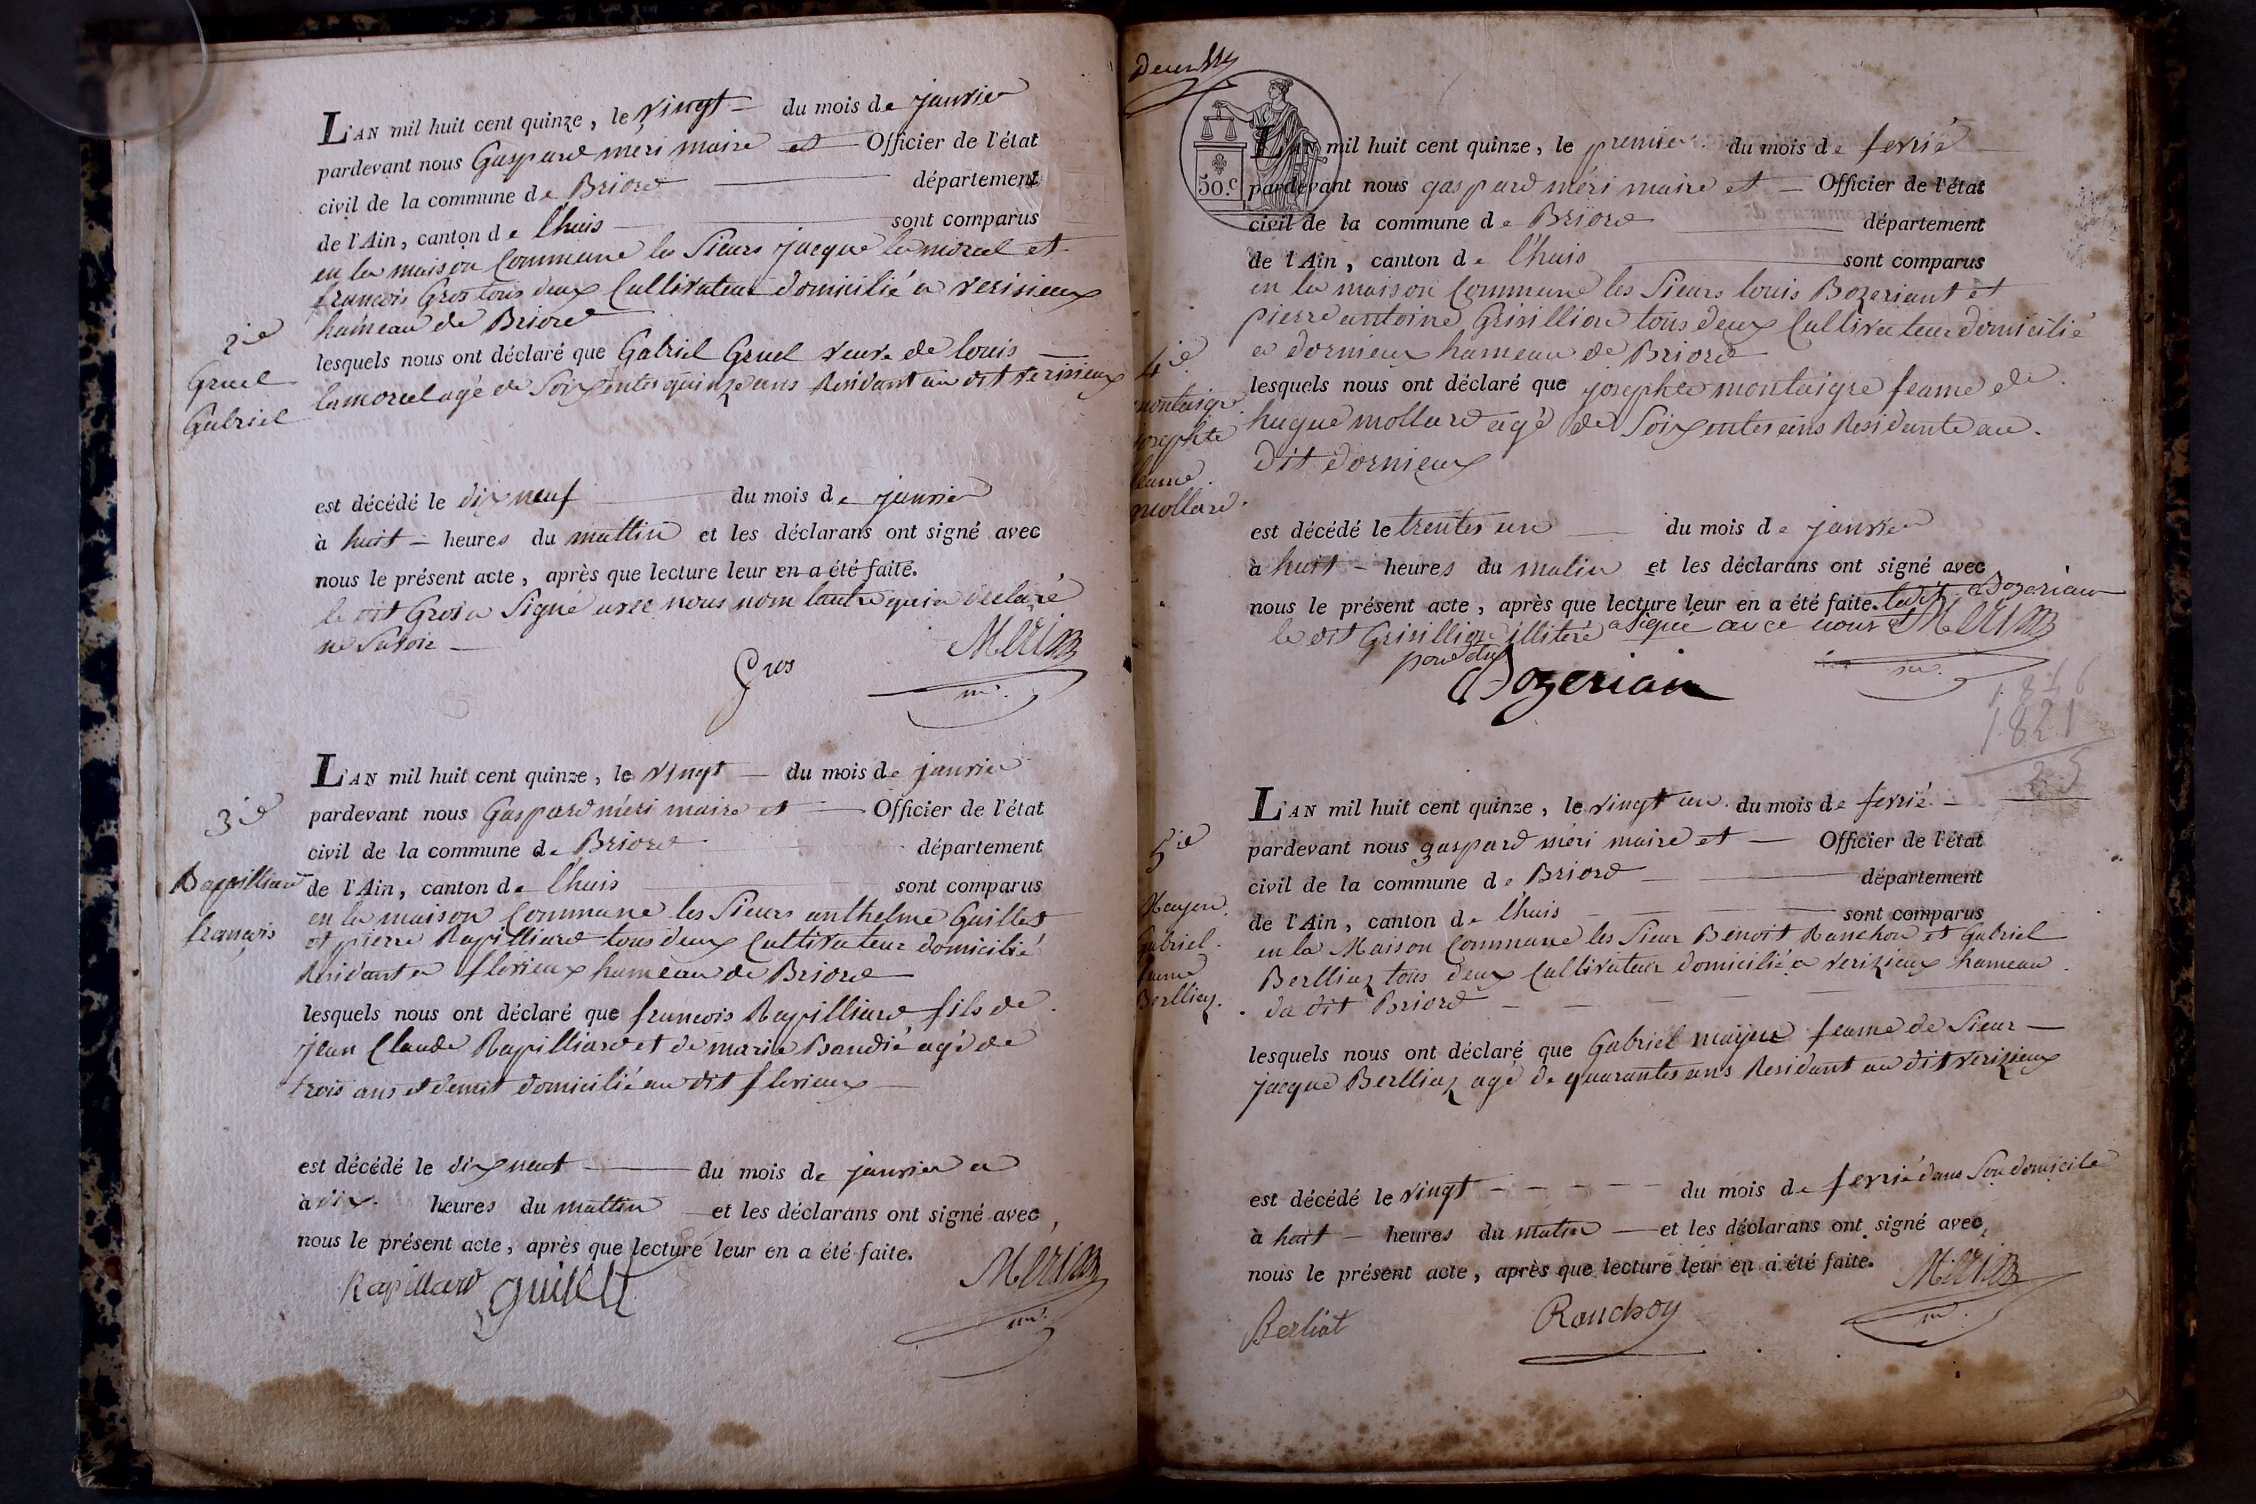 L'AN mil huit cent quinze, le vingt du mois de janvier
pardevant nous Gaspard meri maire et Officier de l'état
civil de la commune de Briord département
de l'Ain, canton de l'huis sont comparus
en la maison Commune les Sieurs jacque lamorcel et
francois Gros tous deux Cultivateur domicilié a verisieux
hameau de Briord
2ie
Gruel
Gabriel
lesquels nous ont déclaré que Gabriel Gruel veuve de louis
lamorcel agé de Soixentes quinze ans Résidant au dit verisieux
est décédé le dix neuf du mois de janvier
à huit heures du mattin et les déclarans ont signé avec
nous le présent acte, après que lecture leur en a été faite.
le dit Gros a Signé avec nous nom lautre qui a declaré
ne Savoir
Gros
Meri
L'AN mil huit cent quinze, le vingt du mois de janvier
3ie
pardevant nous Gaspard méri maire et Officier de l'état
civil de la commune de Briord département
Rapilliard
françois
de l'Ain, canton de l'huis sont comparus
en la maison Commune les Sieurs anthelme Guillet
et pierre Rapilliard tous deux Cultivateur domicilié
Résidant a flerieux hameau de Briord
lesquels nous ont déclaré que francois Rapilliard fils de
jean Claude Rapilliard et de marie Baudié agé de
trois ans et demit domicilié au dit flerieux
est décédé le dix neuf du mois de janvier a
à dix heures du mattin et les déclarans ont signé avec
nous le présent acte, après que lecture leur en a été faite.
Rapillard
guillet
Meri
50.c
L'AN mil huit cent quinze, le premier du mois de fevrié
pardevant nous gaspard méri maire et Officier de l'état
civil de la commune de Briord département
de l'Ain, canton de l'huis sont comparus
en la maison Commune les Sieurs louis Bozeriant et
pierre antoine Grisillion tous deux Cultivateur domicilié
a dornieux hameau de Briord
4ie
montaigre
josephte
feame
mollard
lesquels nous ont déclaré que josephte montaigre feame de
hugue mollard agé de Soixentes ans Residante au
dit dornieux
est décédé le trentes un du mois de janvier
à huit heures du matin et les déclarans ont signé avec
nous le présent acte, après que lecture leur en a été faite. ledit Bozerian
le dit Grisillion illiteré a signé avce nous
Meri
Bozerian
1821
25
L'AN mil huit cent quinze, le vingt un du mois de fevrié
5ie
pardevant nous gaspard méri maire et Officier de l'état
civil de la commune de Briord département
Gabriel
feame
Berlliaz
de l'Ain, canton de l'huis sont comparus
en la Maison Commune les Sieur Benoit Ranchon et Gabriel
Berlliaz tous deux Cultivateur domicilié a verizieux hameau
du dit Briord
lesquels nous ont déclaré que Gabriel mayne feame de Sieur
jacque Berlliaz agé de quarantes ans Residant au dit verizieux
est décédé le vingt du mois de fevrié dans Son domicile
à huit heures du matin et les déclarans ont signé avec
nous le présent acte, après que lecture leur en a été faite.
Berliat
Ronchon
Meri